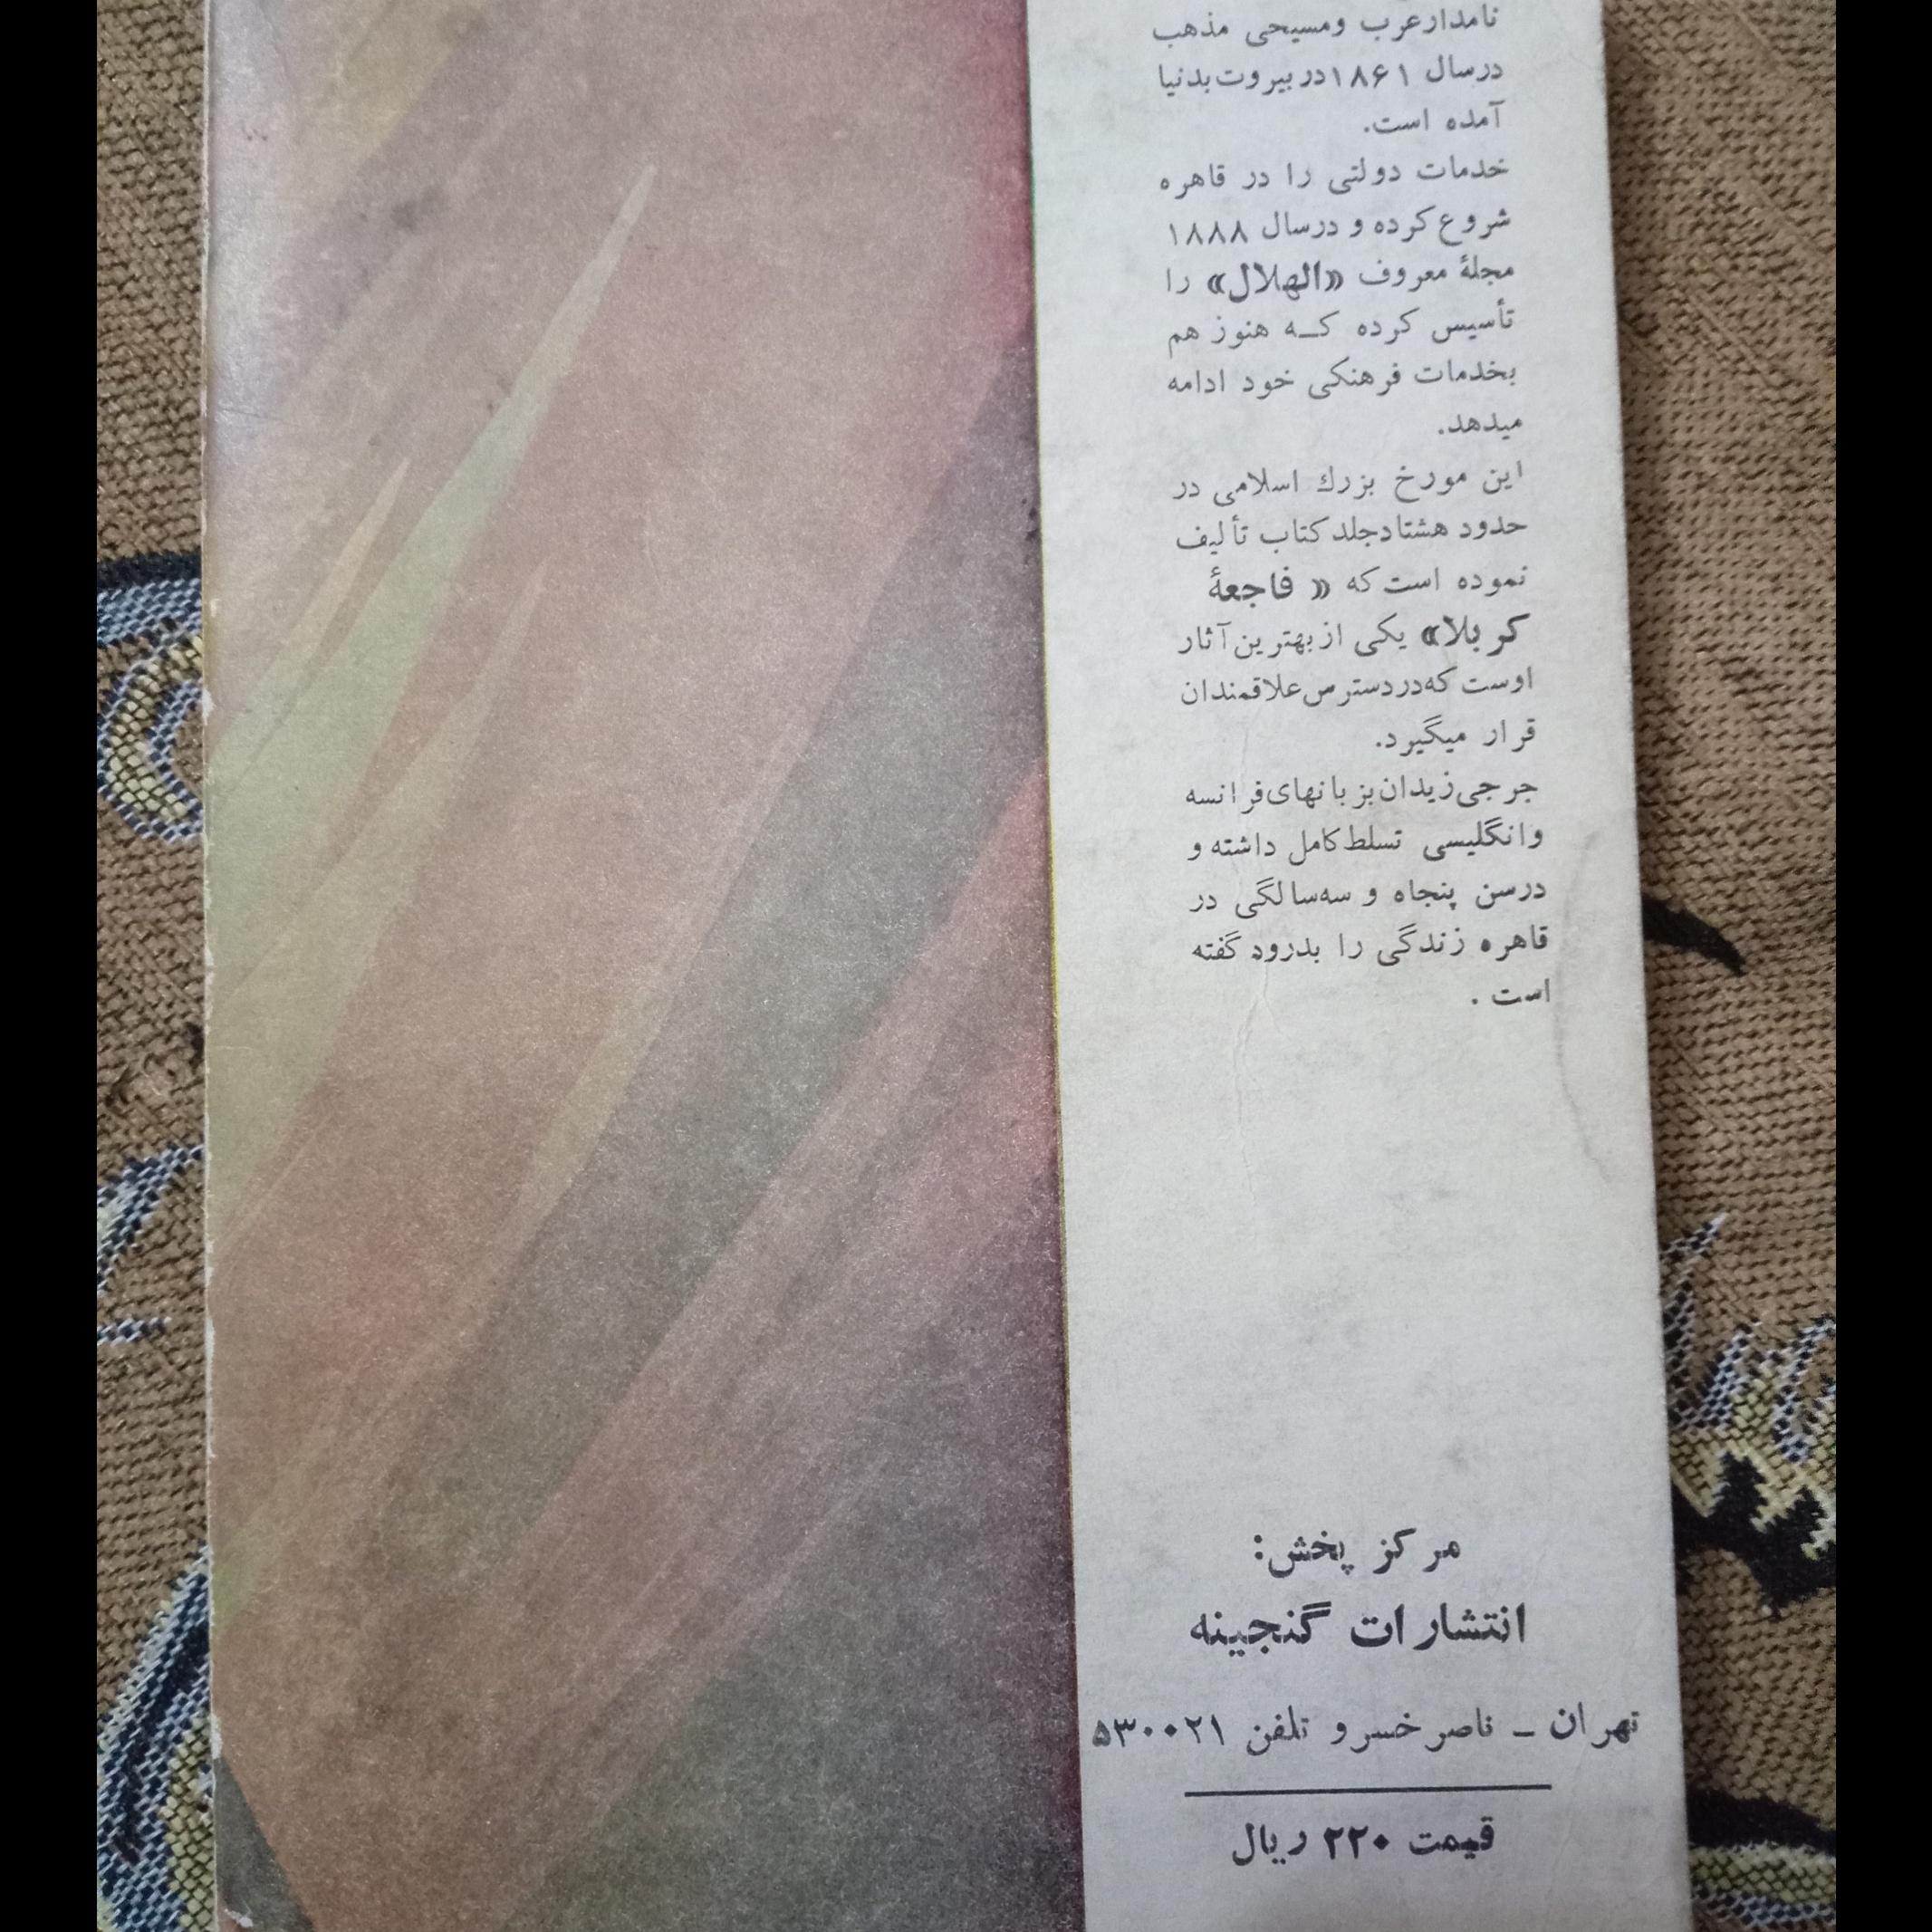 نامدارعرب ومسیحی مذهب
درسال ۱۸۶۱دربیروت‌بدنیا
آمده است.
خدمات دولتی را در قاهره
شروع‌کرده و درسال ۱۸۸۸
مجلهٔ معروف «الهلال» را
تأسیس کرده کـه هنوز هم
بخدمات فرهنکی خود ادامه
میدهد.
این مورخ بزرك اسلامی در
حدود هشتادجلدکتاب تألیف
نموده است‌که « فاجعهٔ
کربلا» یکی ازبهترین‌آثار
اوست که‌دردسترس‌علاقمندان
قرار میگیرد.
جرجی‌زیدان‌بزبانهای‌فرانسه
وانگلیسی تسلط‌کامل داشته و
درسن پنجاه و سه‌سالگی در
قاهره زندگی را بدرود گفته
است .
مرکز پخش:
انتشارات گنجینه
تهران ـ ناصرخسرو تلفن ۵۳۰۰۲۱
قیمت ۲۲۰ ریال